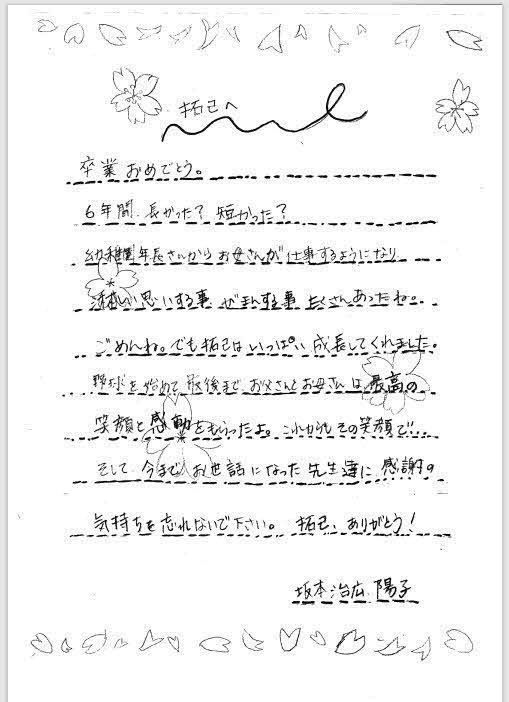 拓己へ
卒業おめでとう。
6年間 長かった？ 短かった？
幼稚園年長さんからお母さんが仕事するようになり
淋しい思いする事 がまんする事 たくさんあったね。
ごめんね。でも拓己はいっぱい成長してくれました。
野球を始めて最後まで お父さんとお母さんは最高の
笑顔と感動をもらったよ。これからもその笑顔で!!…
そして 今までお世話になった先生達に感謝の
気持ちを忘れないで下さい。 拓己、ありがとう！
坂本治広 陽子